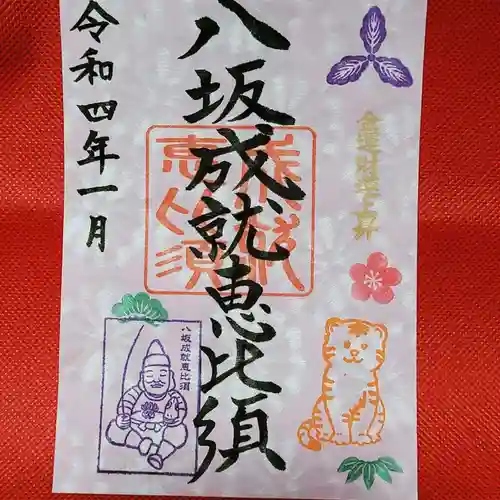 金運財運上昇
八坂成就恵比須
成就恵比須
令和四年一月
八坂成就恵比須